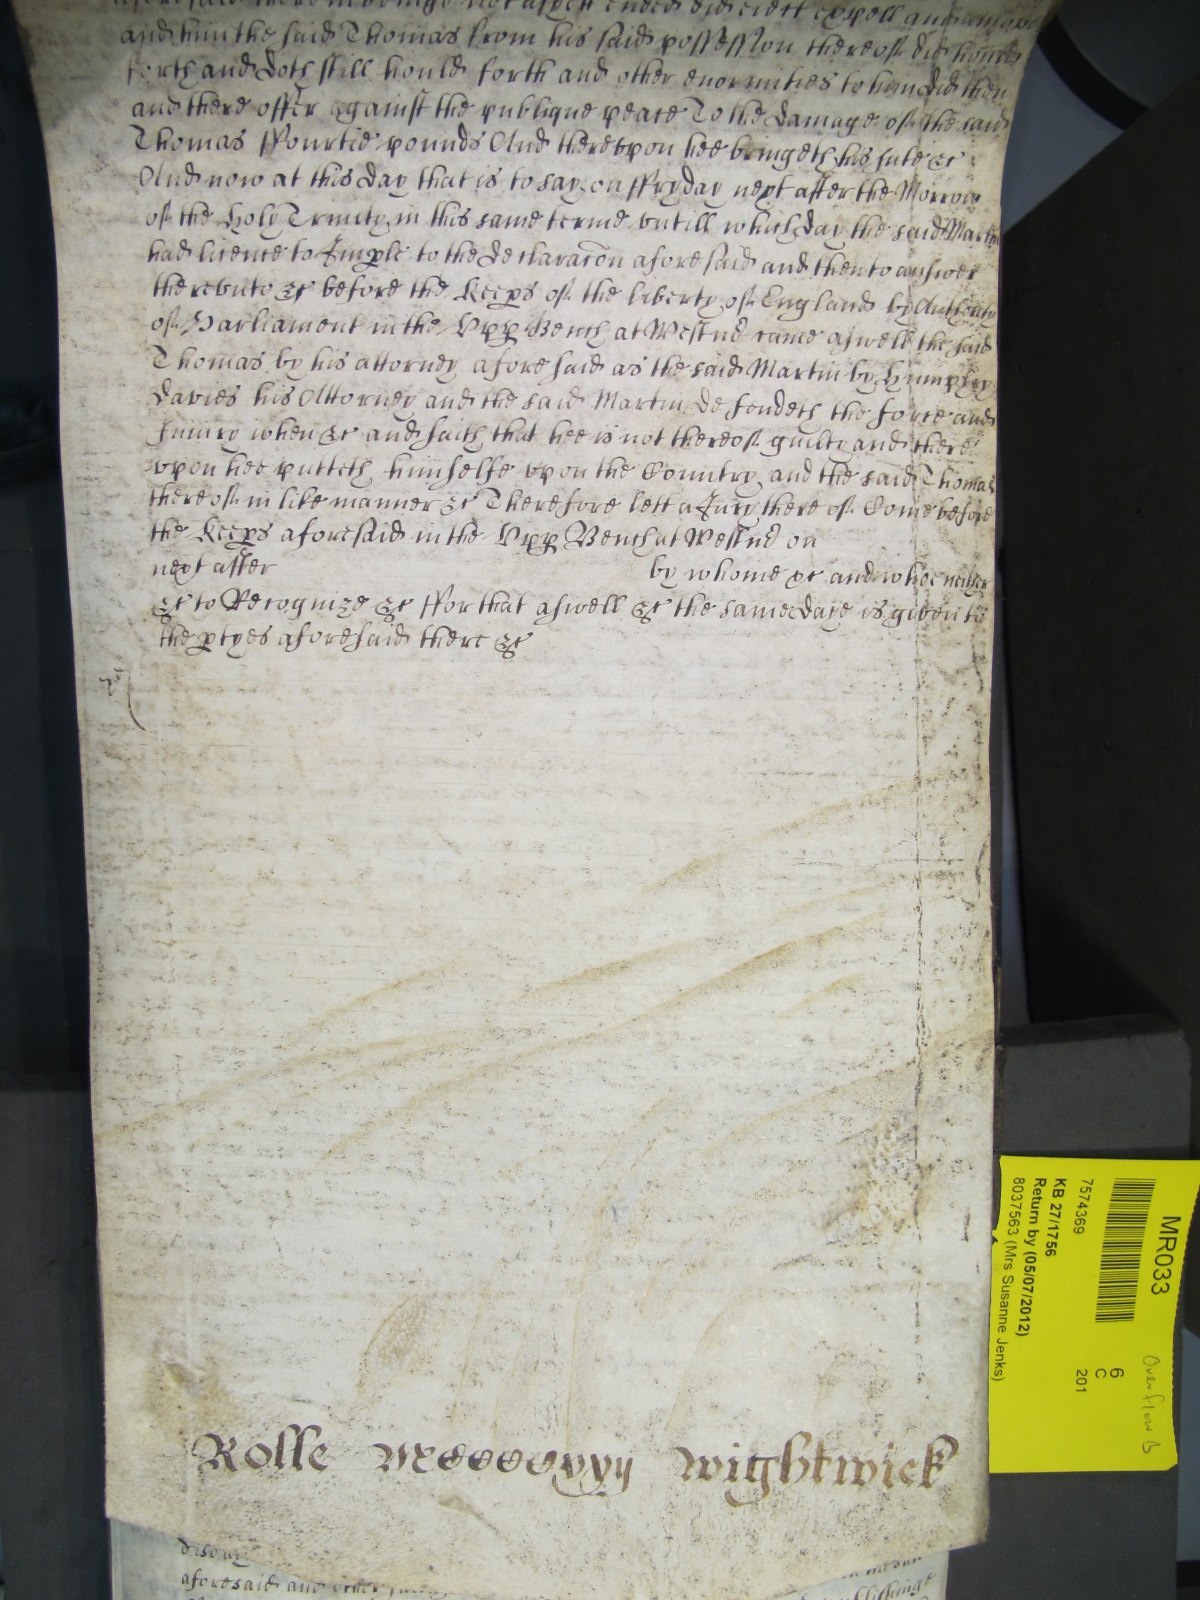 aforesaid therein beinge not as yett ended did eiect expell and amove
and him the said Thomas from his said possession thereof did hould
forth and doth still hould forth and other enormities to him did then
and there offer against the publique peace To the damage of the said
Thomas ffourtie pounds And therevpon hee bringeth his sute &c
And now at this day that is to say on ffryday next after the Morrow
of the Holy Trinity in this same terme vntill which day the said Martin
had licence to Imple to the declaracon aforesaid and then to answer
therevnto &c before the Keeps of the liberty of England by Authority
of Parliament in the Vpp Bench at Westmr came aswell the said
Thomas by his attorney aforesaid as the said Martin by Humphry
Davies his Attorney and the said Martin defendeth the force and
Iniury when &c and saith that hee is not thereof guilty and there
vpon hee putteth himselfe vpon the Country and the said Thomas
thereof in like manner &c Therefore lett a Jury thereof Come before
the Keeps aforesaid in the Vpp Bench at Westmr on
next after by whome &c and whoe neither
&c to Recognize &c ffor that aswell &c the same daye is given to
the ptyes aforesaid there &c
Rolle Wightwick
aforesaid and other
MR033
7574369
KB 27/1756
Return by (05/07/2012)
8037563 (Mrs Susanne Jenks)
6
C
201
Overflow B